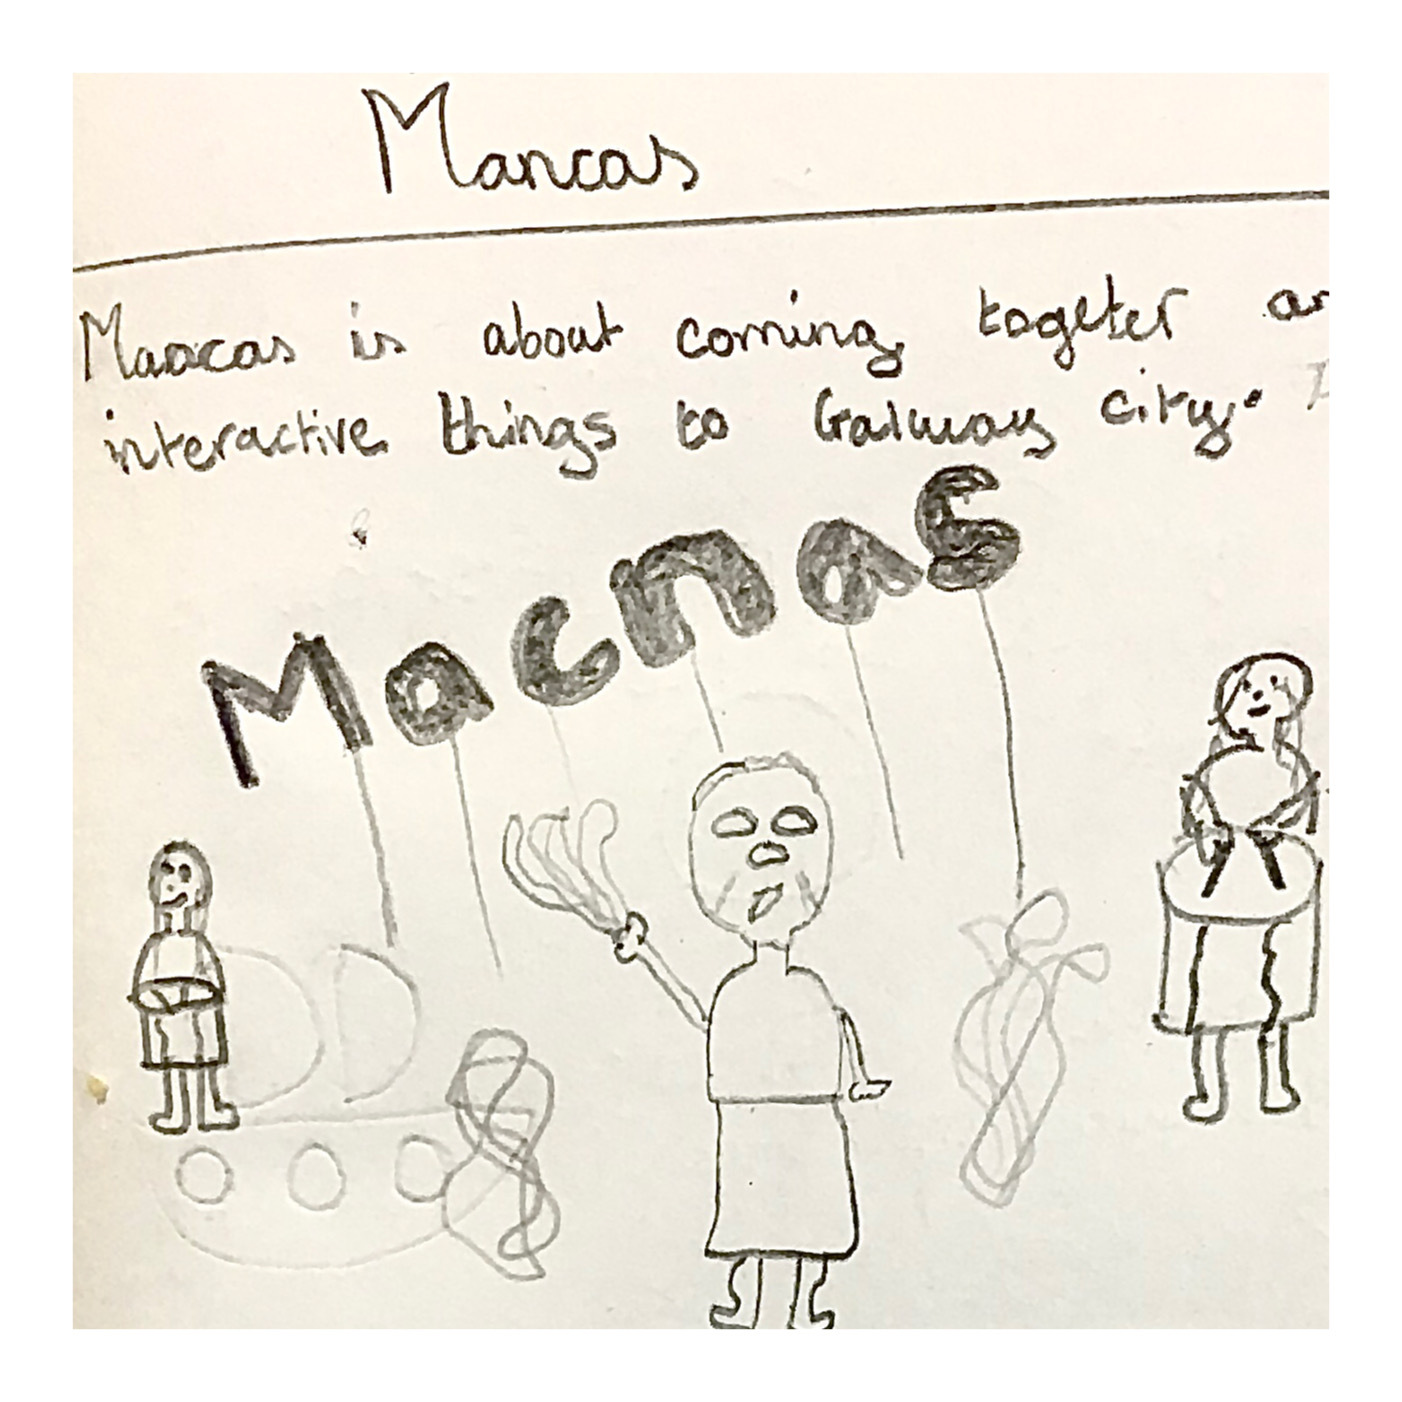 Mancas
Mancas is about coming togeter
interactive things to Galway city.
Macnas